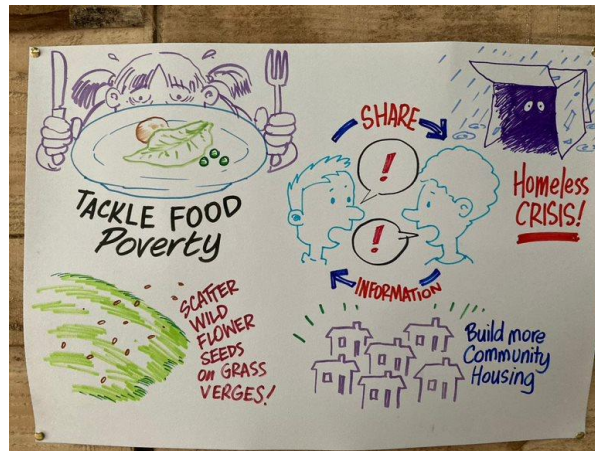 TACKLE FOOD
Poverty
SHARE
!
!
INFORMATION
Homeless
CRISIS!
SCATTER
WILD
FLOWER
SEEDS
on GRASS
VERGES!
Build more
Community
Housing